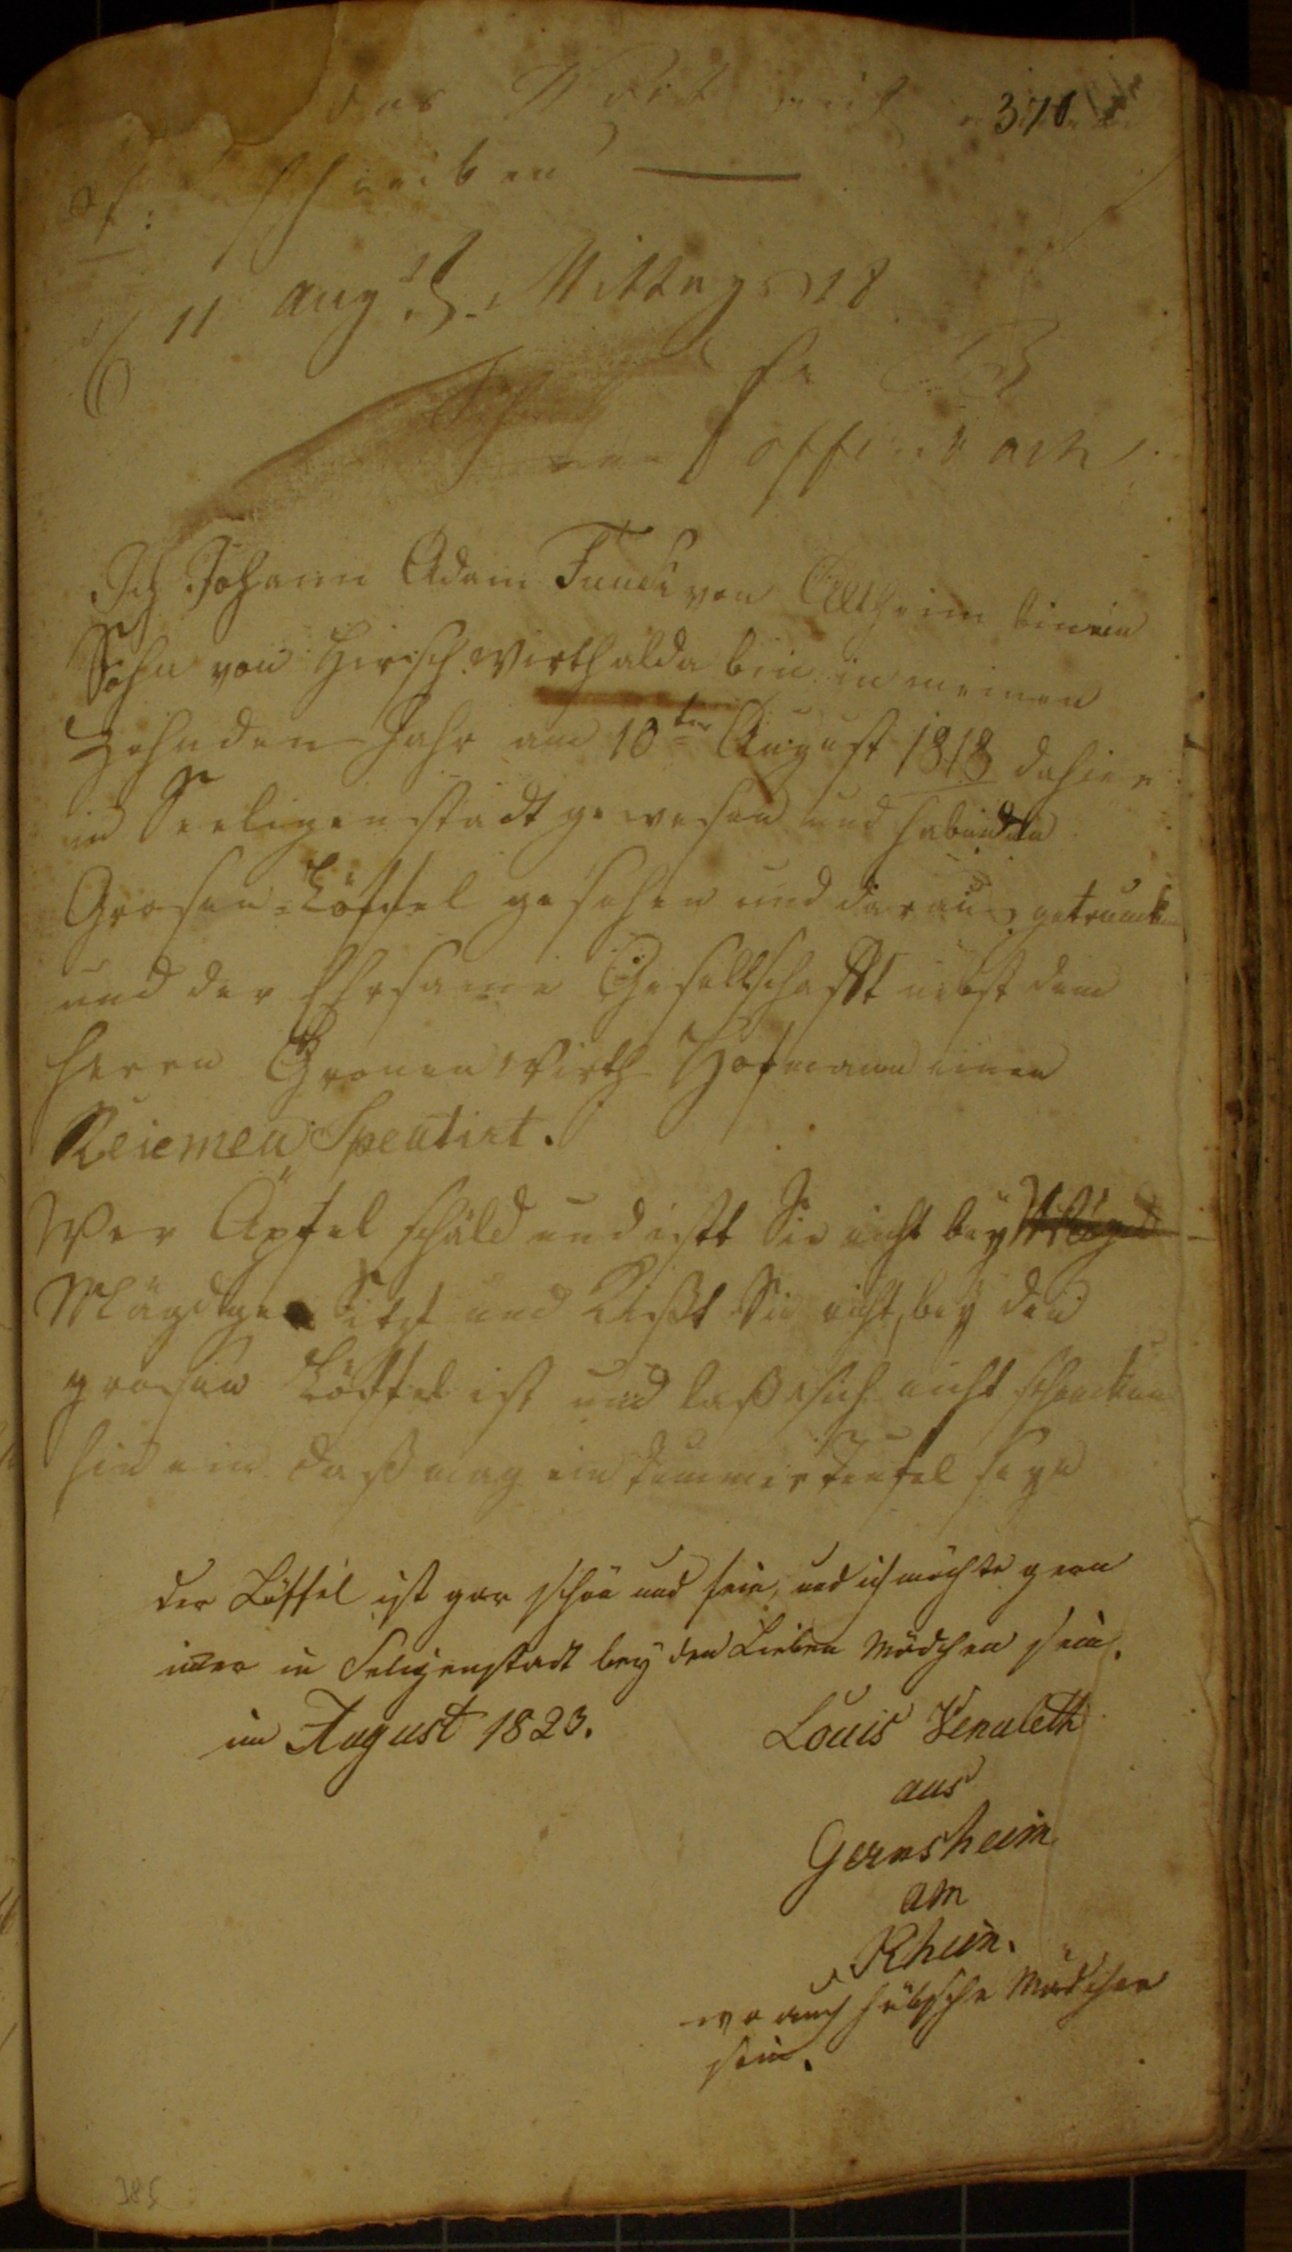 370
das Wort
schreiben
11 Aug Mittags 18
offenbach
Ich Johann Adam Funck von Altheim bin ein
Sohn von Hirsch wirth alda bin in meinen
Zehnden Jahr am 10ten August 1818 dahier
in Seeligenstadt gewesen und hab
Grosen Löffel gesehen und daraus getrunck
und der Ehrsame Gesellschafft nebst dem
Herrn Cronen Wirth Hofmann einen
Reiemen Spentirt.
Wer Äpfel schäld und isst Sie nicht bey
Mägdgen Sitzt und Küsst Sie nicht, bey den
grosen Löffel ist und lasst sich nicht schencken
hin ein daß mag ein dummer Teufel seyn
der Löffel ist gar schön und fein, und ich möchte gern
imer in Seligenstadt bey den Lieben Mädchen sein.
im August 1823.
Louis Venuleth
aus
Gernsheim
am
Rhein.
wo auch hübsche Mädchen
sein.
385